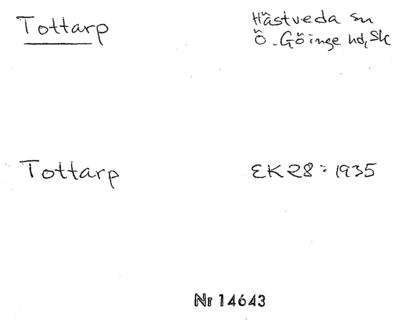 Tottarp
Hästveda sn
Ö. Göinge hd, Sk
Tottarp
EK 28 : 1935
Nr 14643